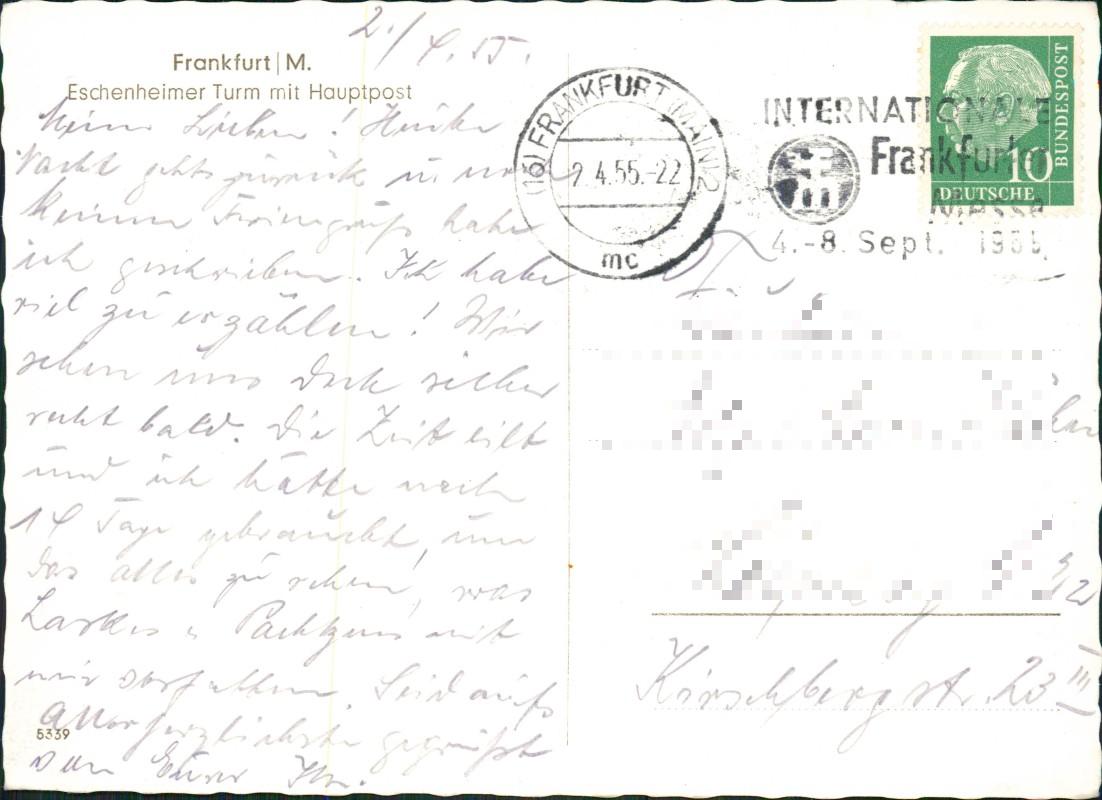 2./4.55.
Frankfurt | M.
Eschenheimer Turm mit Hauptpost
Meine Lieben! Heute
Nacht gehts zurück u. noch
keinen Feriengruß habe
ich geschrieben. Ich habe
viel zu erzählen! Wir
sehen uns doch sicher
recht bald. Die Zeit eilt
und ich hätte noch
14 Tage gebraucht, um
das alles zu sehen, was
mit
mir vorhatten. Seid aufs
Allerherzlichste gegrüßt
von Eurer
5339
(16) FRANKFURT (MAIN) 2
2.4.55.-22
mc
INTERNATIONALE
Frankfurter
Messe
4.-8. Sept. 1955
10
DEUTSCHE
BUNDESPOST
Kirschbergstr. 23 III